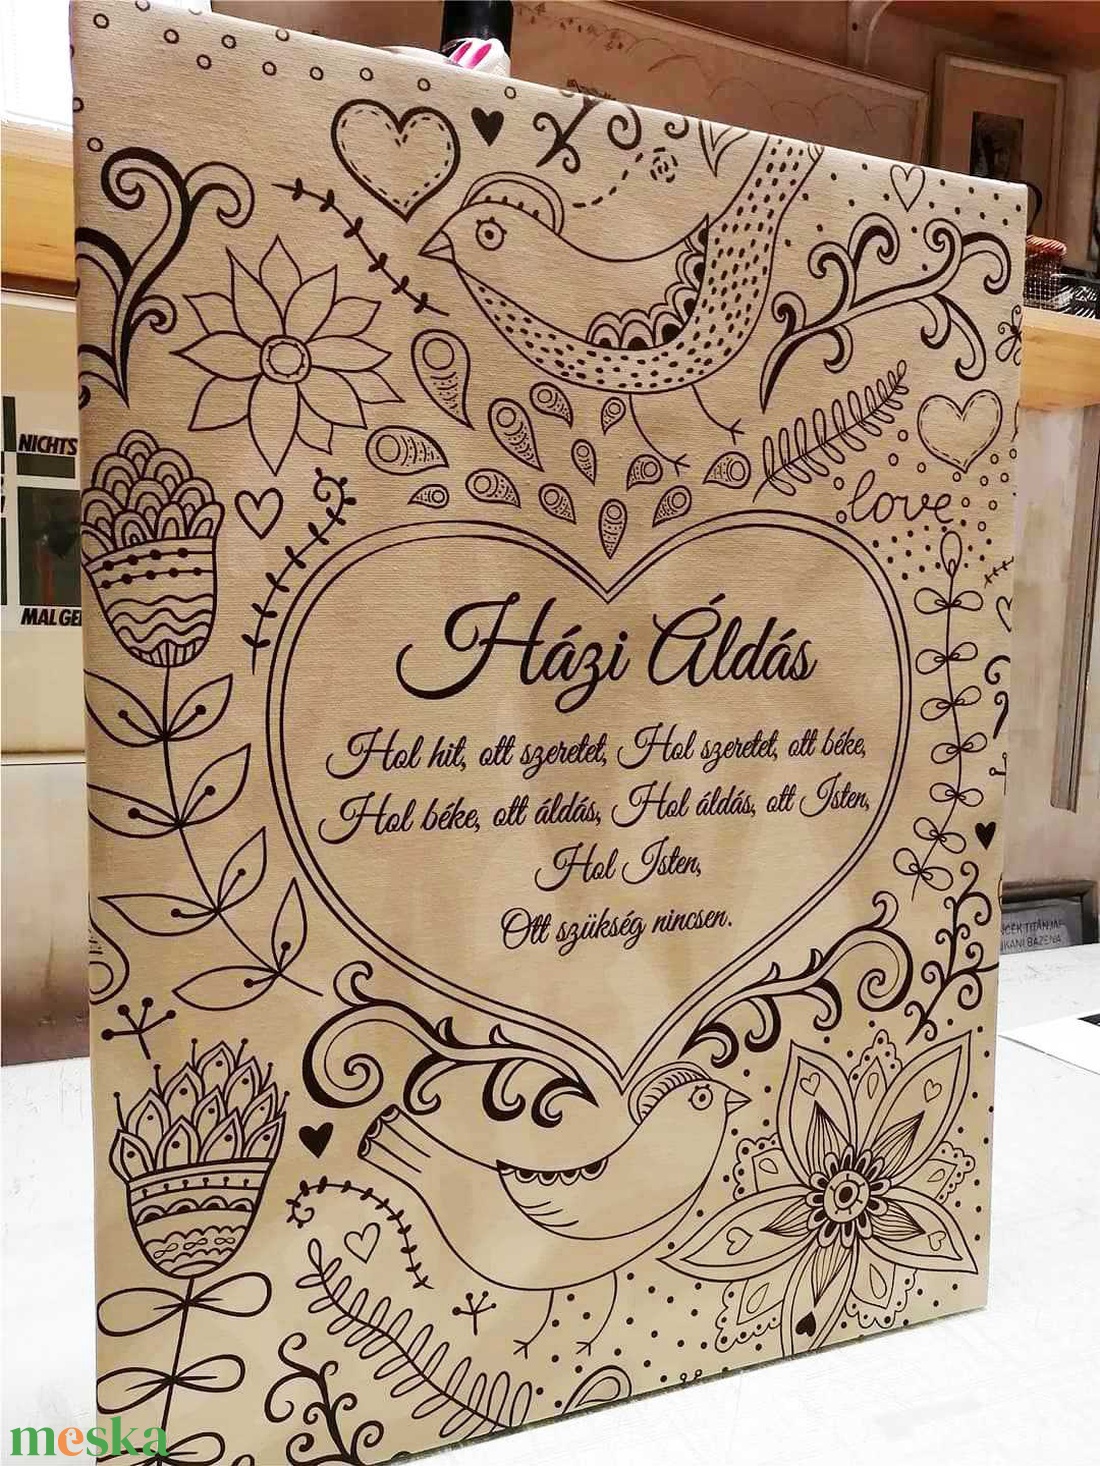 love
Házi Áldás
Hol hit, ott szeretet, Hol szeretet, ott béke,
Hol béke, ott áldás, Hol áldás, ott Isten,
Hol Isten,
Ott szükség nincsen.
NICHTS
MAL
TITÁNJAI
BAZENA
meska